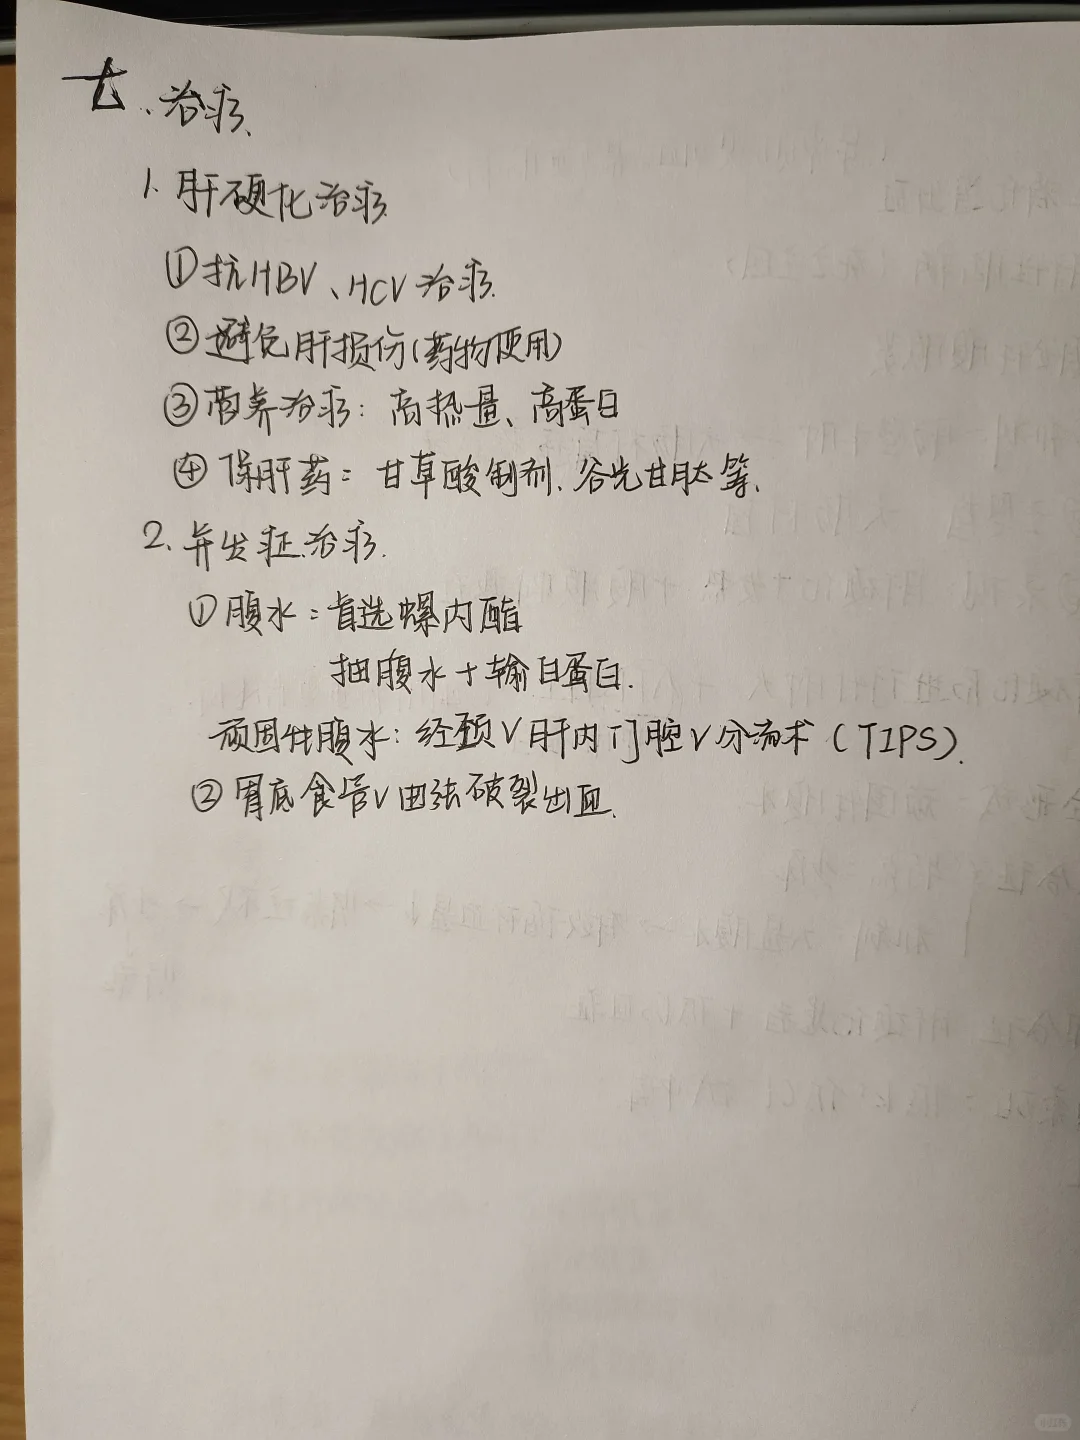 七、治疗.
1. 肝硬化治疗
①抗HBV、HCV治疗.
②避免肝损伤(药物使用)
③营养治疗: 高热量、高蛋白
④保肝药: 甘草酸制剂.谷光甘肽等.
2. 并发症治疗.
①腹水: 首选螺内酯
抽腹水+输白蛋白.
顽固性腹水: 经颈V肝内门腔V分流术(TIPS).
②胃底食管V曲张破裂出血.
小红书